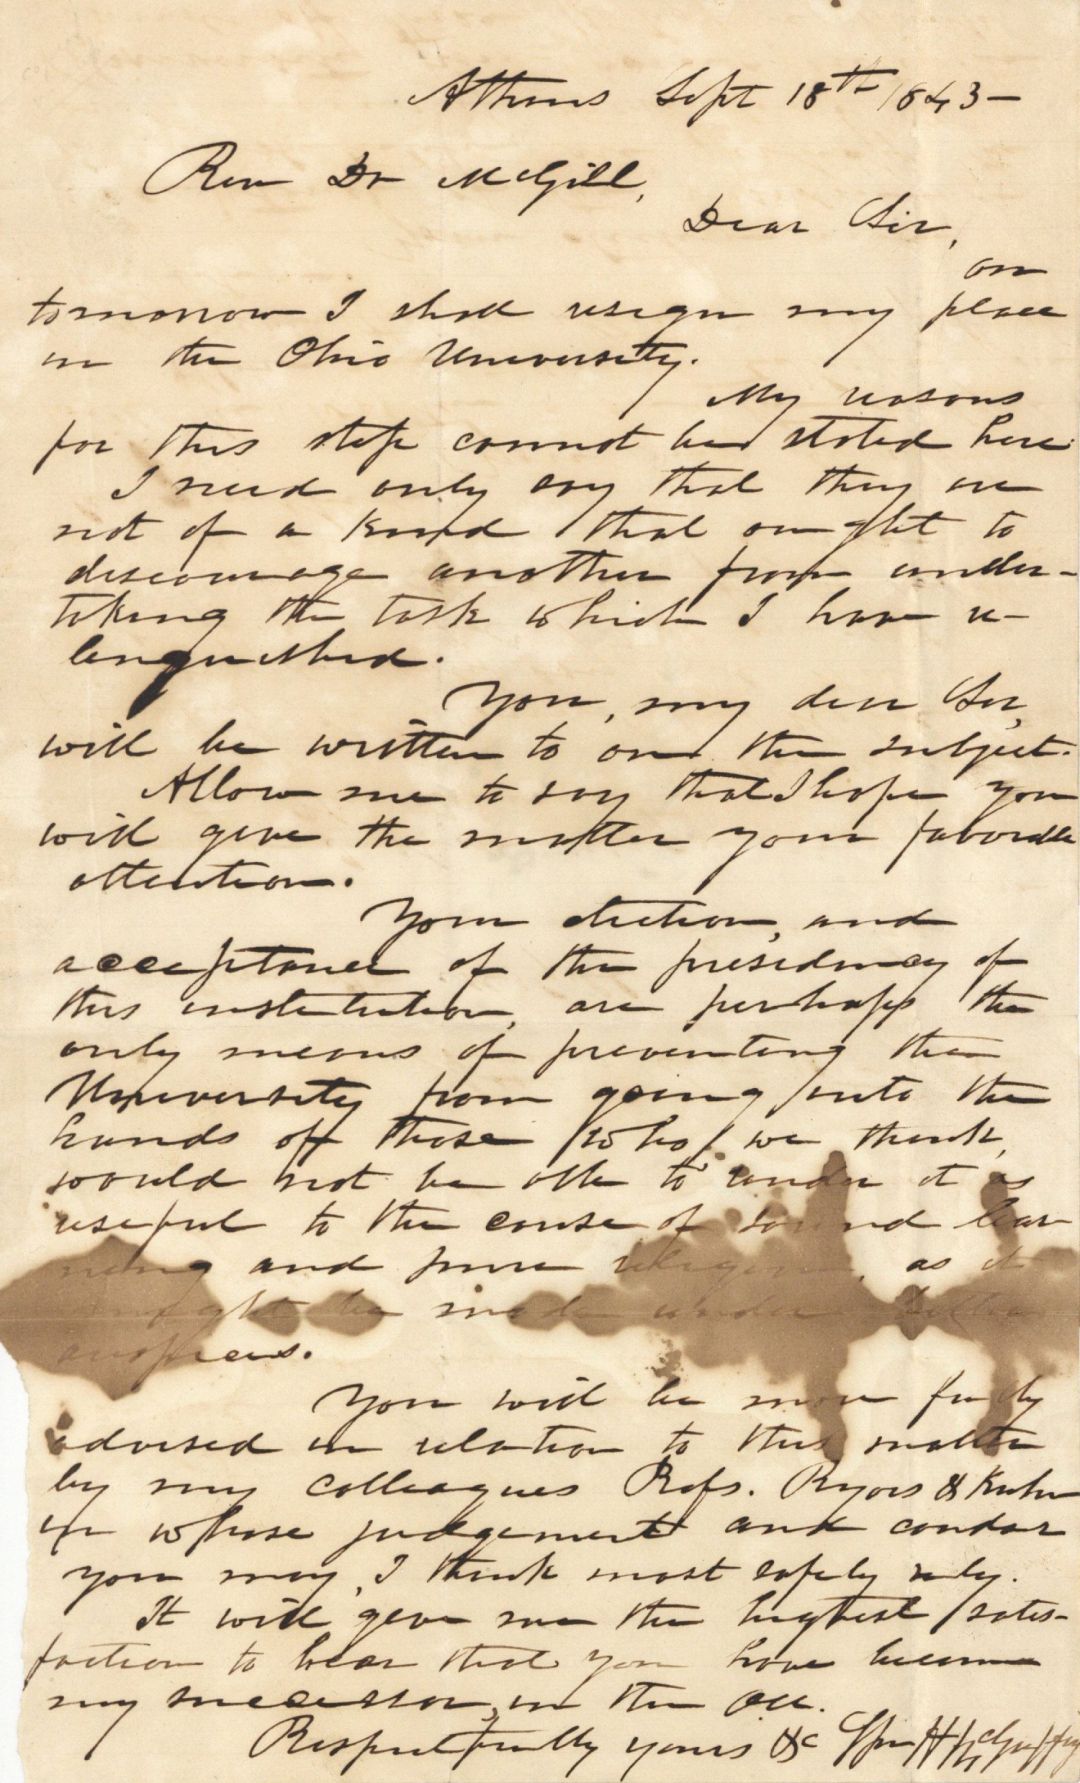 Athens Sept 18th 1843—
Rev Dr McGill,
Dear Sir,
on
tomorrow I shall resign my place
in the Ohio University.
My reasons
for this step cannot be stated here
I need only say that they are
not of a kind that ought to
discourage another from under-
taking the task which I have re-
linquished.
You, my dear Sir,
will be written to on the subject.
Allow me to say that I hope you
will give the matter your favorable
attention.
Your election, and
acceptance of the presidency of
this institution, are perhaps the
only means of preventing the
University from going into the
hands of those who, we think,
would not be able to render it as
useful to the cause of sound lear
ning and pure religion, as it
might be made under better
auspices.
You will be more fully
advised in relation to this matter
by my colleagues Profs. Ryors & Kuhn
in whose judgement and candor
you may, I think most safely rely.
It will give me the highest satis-
faction to hear that you have become
my successor, in the OU.
Respectfully yours &c Wm H McGuffey